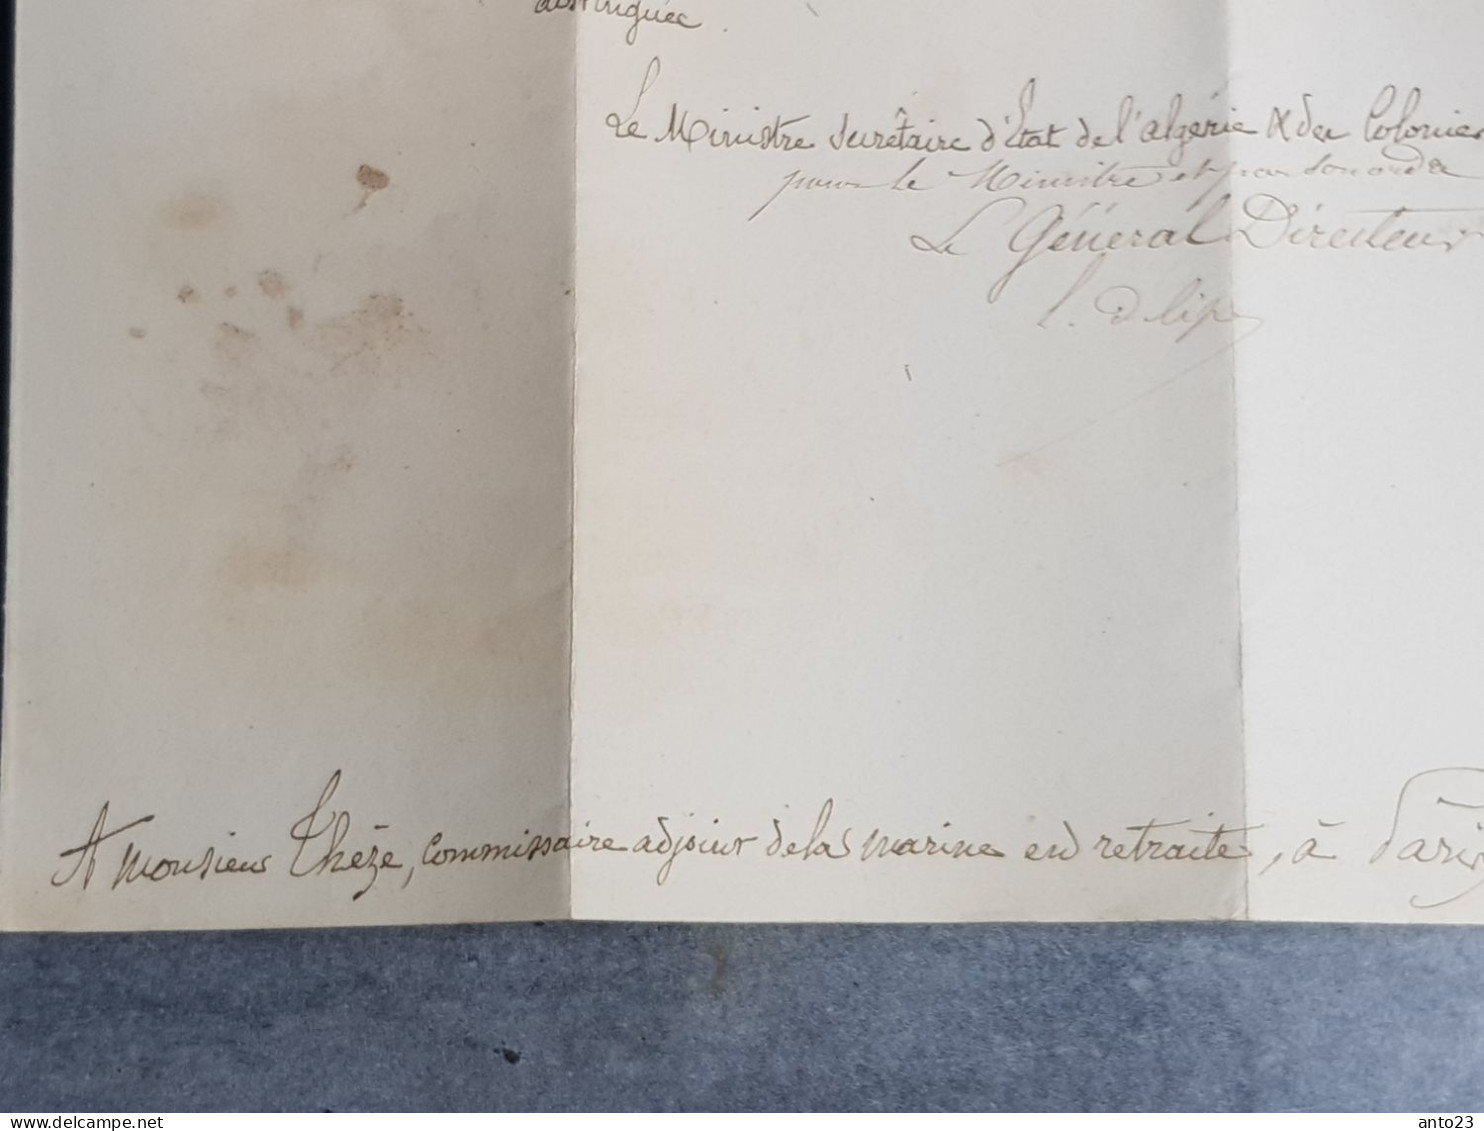 distinguée.
Le Ministre secrétaire d'Etat de l'algérie & des Colonies
pour le Ministre et par son ordre
Le Général Directeur
A monsieur Thèze, commissaire adjoint de la marine en retraite, à Paris
delcampe.net
anto23